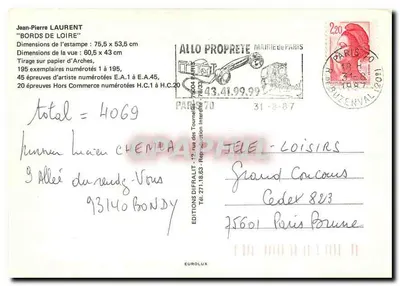 Jean-Pierre LAURENT
"BORDS DE LOIRE"
Dimensions de l'estampe : 75,5 x 53,5 cm
Dimensions de la vue : 60,5 x 43 cm
Tirage sur papier d'Arches,
195 exemplaires numérotés 1 à 195,
45 épreuves d'artiste numérotées E.A.1 à E.A.45,
20 épreuves Hors Commerce numérotées H.C.1 à H.C.20
ALLO PROPRETÉ MAIRIE de PARIS
43.41.99.99
PARIS 20
31-8-87
PARIS 20
18 H
31-8
1987
2,20
total = 4069
Lucien CHEMLA
9 Allée du rendez-Vous
93140 BONDY
TELE-LOISIRS
Grand Concours
Cedex 823
75601 Paris Brune
EDITIONS DIFRALIT - 17 rue des Tournelles
EUROLUX